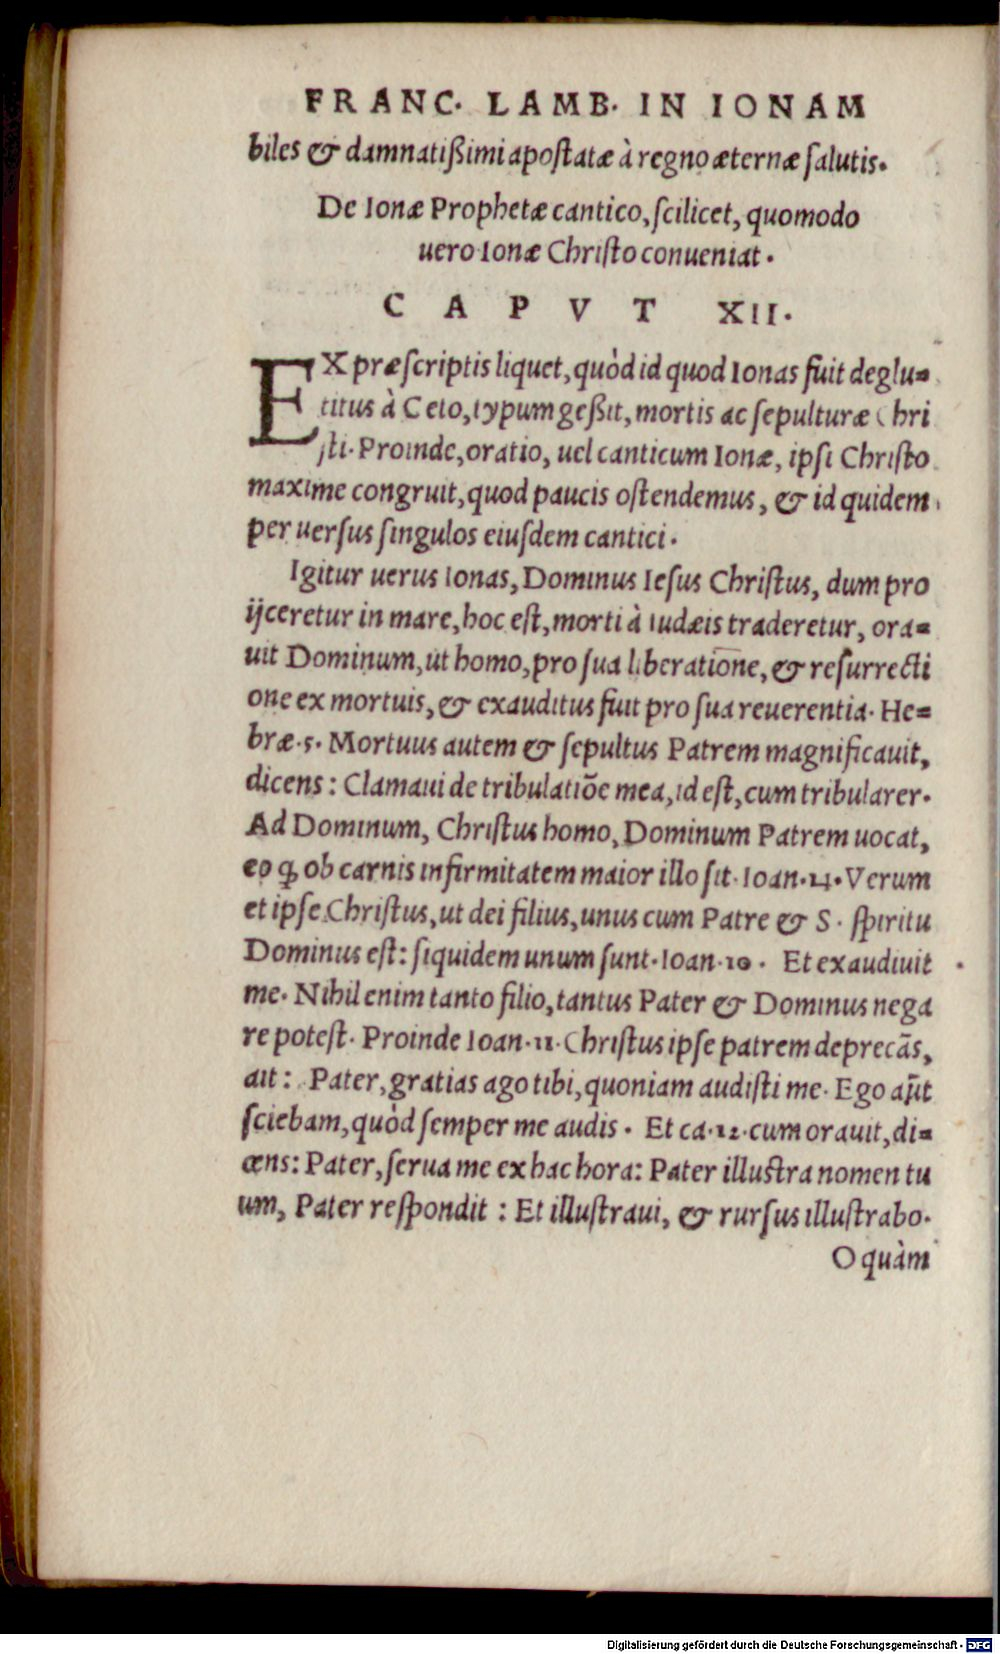 FRANC. LAMB. IN IONAM
biles & damnatißimi apoſtatæ à regno æternæ ſalutis.
De Ionæ Prophetæ cantico, ſcilicet, quomodo
uero Ionæ Chriſto conueniat.
CAPVT XII.
EX præſcriptis liquet, quòd id quod Ionas fuit deglu=
titus à Ceto, typum geßit, mortis ac ſepulturæ Chri
ſti. Proinde, oratio, uel canticum Ionæ, ipſi Chriſto
maxime congruit, quod paucis oſtendemus, & id quidem
per uerſus ſingulos eiuſdem cantici.
Igitur uerus Ionas, Dominus Ieſus Chriſtus, dum pro
ijceretur in mare, hoc eſt, morti à Iudæis traderetur, ora=
uit Dominum, ut homo, pro ſua liberatione, & reſurrecti
one ex mortuis, & exauditus fuit pro ſua reuerentia. He=
bræ.5. Mortuus autem & ſepultus Patrem magnificauit,
dicens: Clamaui de tribulatiōe mea, id eſt, cum tribularer.
Ad Dominum, Chriſtus homo, Dominum Patrem uocat,
eo ꝙ ob carnis infirmitatem maior illo ſit. Ioan.14. Verum
et ipſe Chriſtus, ut dei filius, unus cum Patre & S. ſpiritu
Dominus eſt: ſiquidem unum ſunt. Ioan.10. Et exaudiuit
me. Nihil enim tanto filio, tantus Pater & Dominus nega
re poteſt. Proinde Ioan.11. Chriſtus ipſe patrem deprecās,
ait: Pater, gratias ago tibi, quoniam audiſti me. Ego aūt
ſciebam, quòd ſemper me audis. Et ca.12. cum orauit, di=
cens: Pater, ſerua me ex hac hora: Pater illuſtra nomen tu
um, Pater reſpondit: Et illuſtraui, & rurſus illuſtrabo.
O quàm
Digitalisierung gefördert durch die Deutsche Forschungsgemeinschaft - DFG